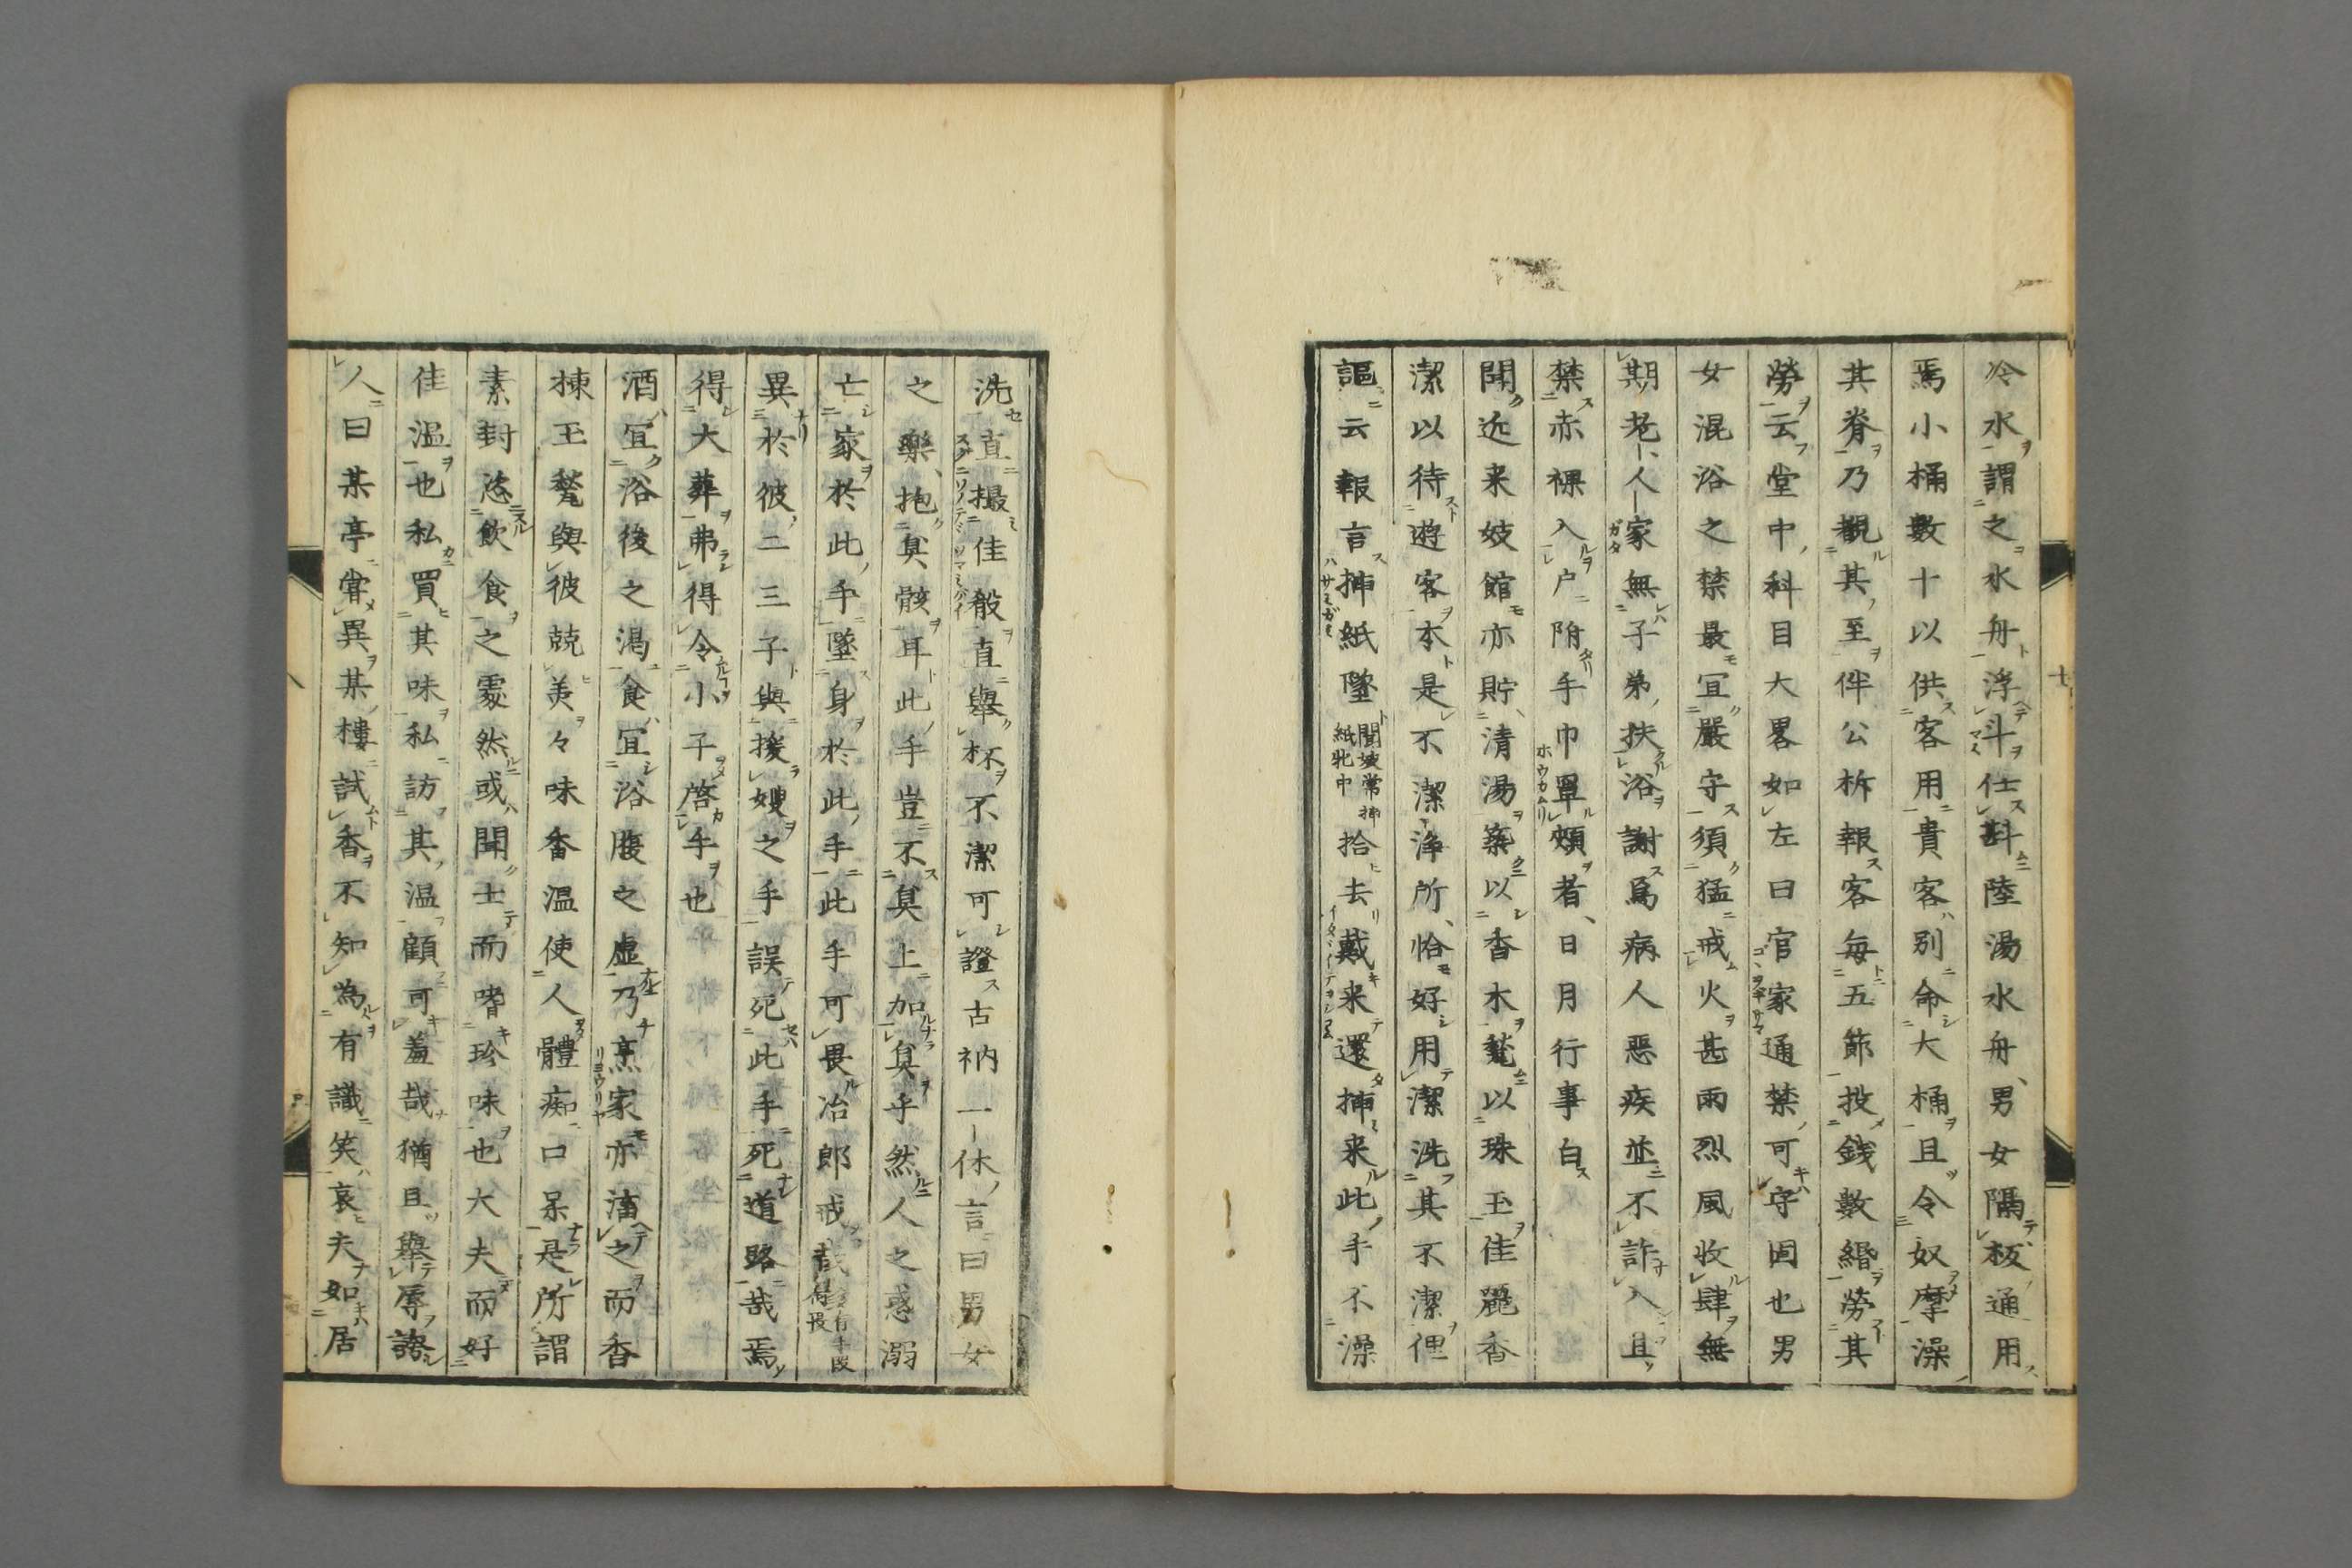 冷水謂之水舟浮斗仕斟陸湯水舟男女隔板通用
焉小桶數十以供客用貴客別命大桶且令奴摩澡
其脊乃覩其至伴公柝報客每五節投錢數緡勞其
勞云堂中科目大畧如左曰官家通禁可守固也男
女混浴之禁最宜嚴守須猛戒火甚雨烈風收肆無
期老人家無子弟扶浴謝焉病人惡疾並不許入且
禁赤裸入戶附手巾罩頰者日月行事白
聞近来妓館亦貯清湯築以香木甃以珠玉佳麗香
潔以待遊客本是不潔淨所恰好用潔洗其不潔俚
謳云報言揷紙墜聞坡常揷紙牝中拾去戴来還揷来此手不澡
洗直撮佳殽直舉杯不潔可證古衲一休言曰男女
之樂抱臭骸耳此手豈不臭上加臭乎然人之惑溺
亡家於此手墜身於此手此手可畏冶郎戒哉
異於彼二三子與援嫂之手誤死此手死道路哉焉
得大葬弗得令小子啓手也
酒宜浴後之渴食宜浴腹之虛乃烹家亦湢之而香
揀玉甃與彼兢美々味香溫使人體痴口呆是所謂
素封恣飲食之處然或聞士而嗜珍味也大夫而好
佳溫也私買其味私訪其溫顧可羞哉猶且舉辱誇
人曰某亭嘗異某樓試香不知為有識笑哀夫如居